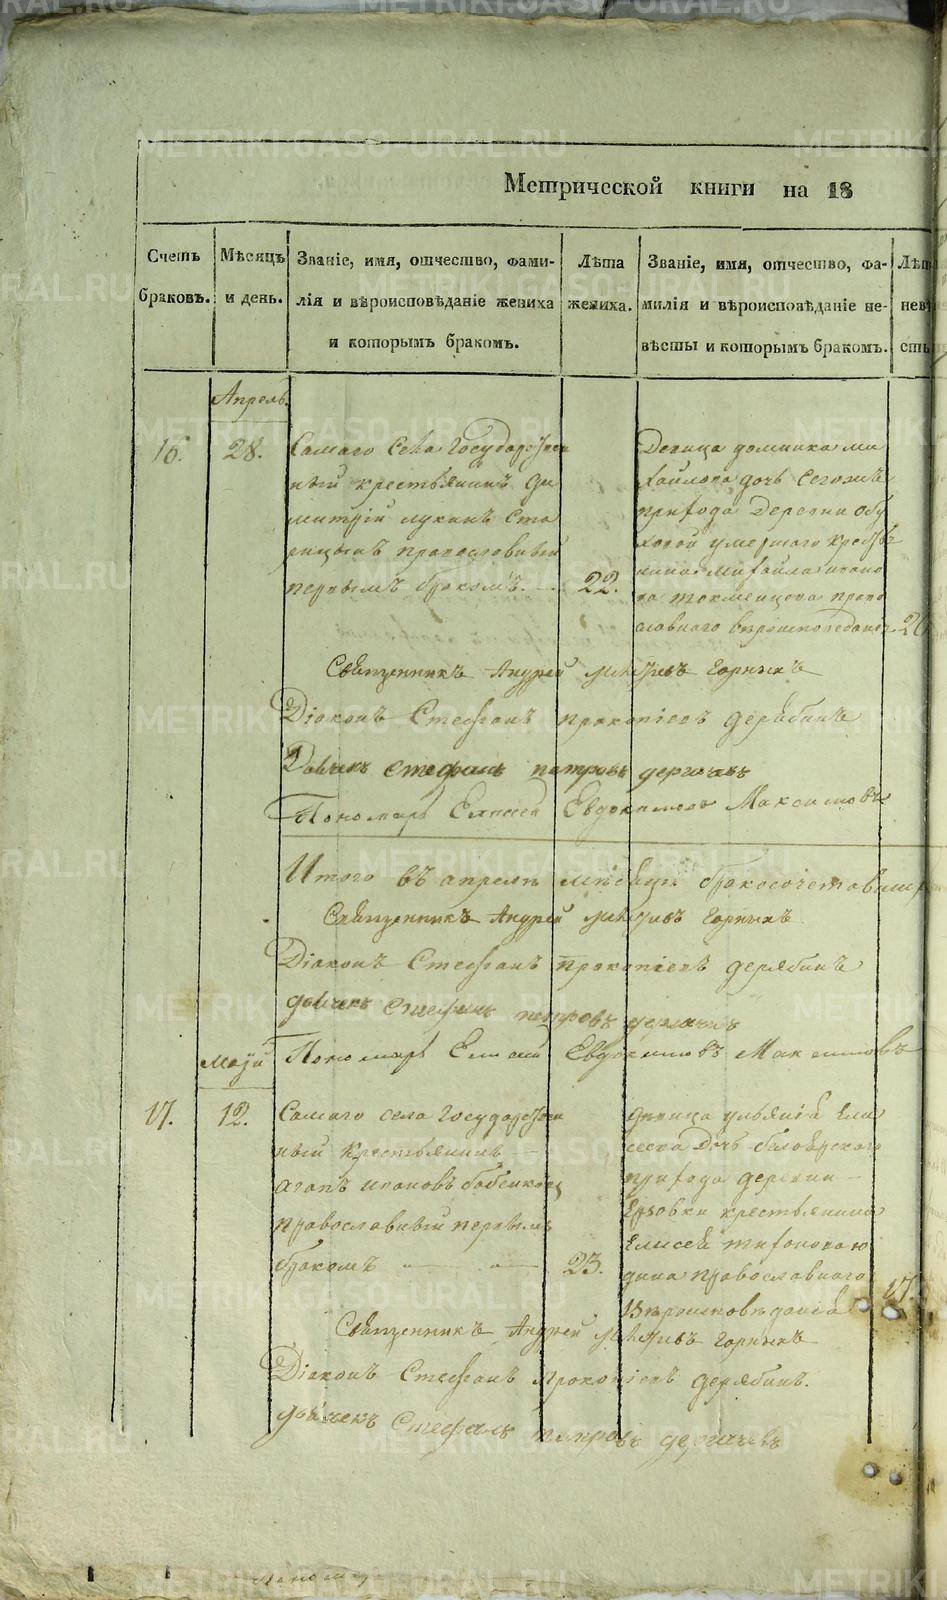 Метрической книги на 18
Счетъ браковъ.
Мѣсяцъ и день.
Званіе, имя, отчество, фами-
лія и вѣроисповѣданіе жениха
и которымъ бракомъ.
Лѣта жениха.
Званіе, имя, отчество, фа-
милія и вѣроисповѣданіе не-
вѣсты и которымъ бракомъ.
Апрель.
16.
28.
Самаго села Государствен
ный крестьянинъ Ди
митрій Лукинъ Ста
рицынъ православный
первымъ бракомъ.
22.
Девица домника ми
хайлова дочь сегожъ
прихода деревни Обу
ховой умершаго кресть
нина Михайла
право
славнаго вероисповеданія
20
Священникъ Андрей Горныхъ
Діаконъ Стефанъ Прокопіевъ Дерябинъ
Дьячекъ Стефанъ петровъ дергачевъ
Пономарь Елисей Евдокимовъ Максимовъ
Итого въ апрелѣ мѣсяцѣ бракосочетавших
Священникъ Андрей Горныхъ
Діаконъ Стефанъ Прокопіевъ дерябинъ
дьячекъ Стефанъ петровъ дергачевъ
Пономарь Елисей Евдокимовъ Максимовъ
Маій
17.
12.
Самаго села Государствен
ный крестьянинъ
агапъ ивановъ
православный первымъ
бракомъ
23.
девица ульянія ели
сеева дочь белоярского
прихода деревни
крестьянина
Елисея
дина православнаго
Вѣроисповѣданія
17.
Священникъ Андрей Горныхъ
Діаконъ Стефанъ Прокопіевъ дерябинъ.
дьячекъ Стефанъ петровъ дергачевъ
Пономарь
METRIKI.GASO-URAL.RU